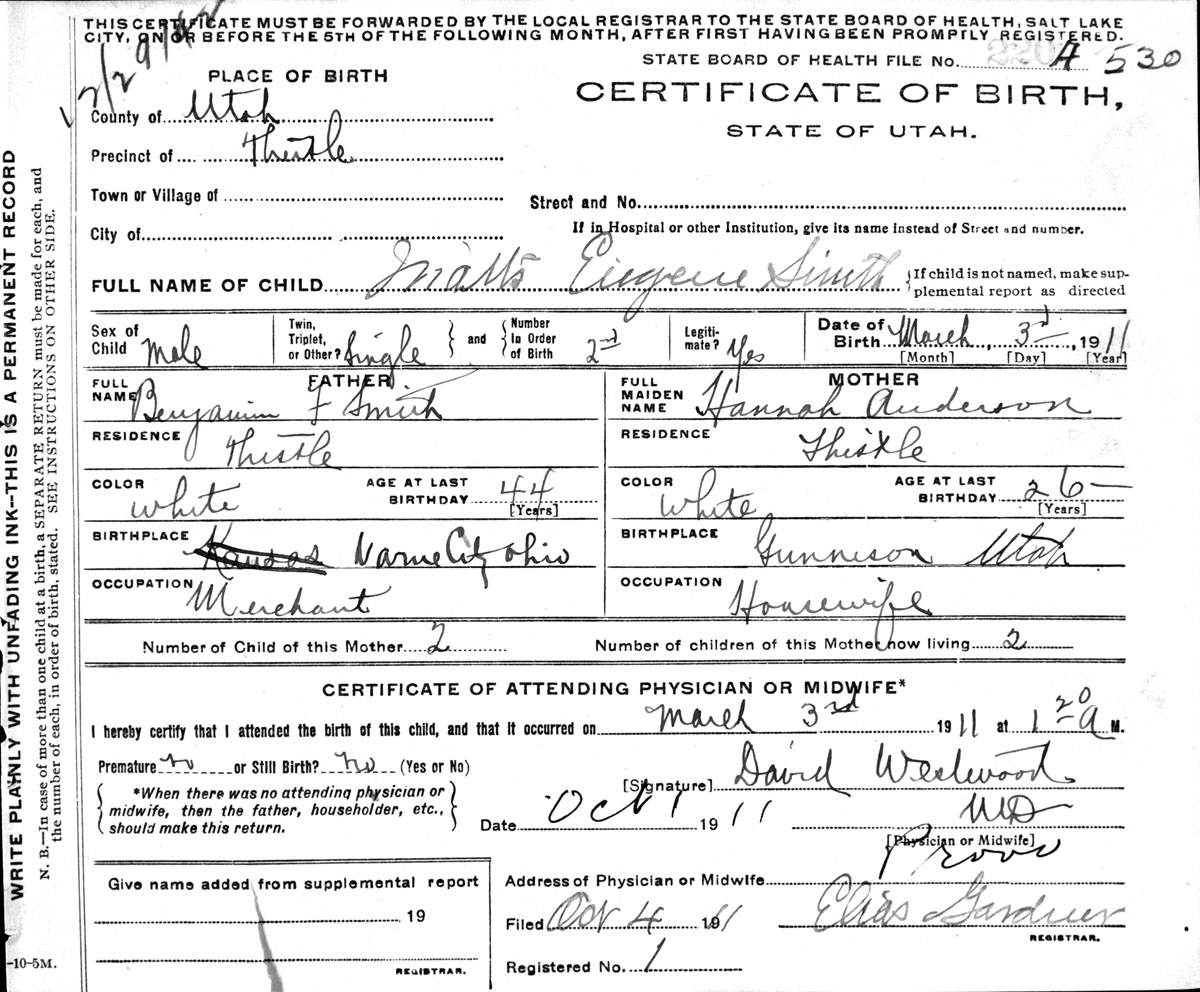 THIS CERTIFICATE MUST BE FORWARDED BY THE LOCAL REGISTRAR TO THE STATE BOARD OF HEALTH, SALT LAKE
CITY, ON OR BEFORE THE 5TH OF THE FOLLOWING MONTH, AFTER FIRST HAVING BEEN PROMPTLY REGISTERED.
STATE BOARD OF HEALTH FILE No. A 530
PLACE OF BIRTH
CERTIFICATE OF BIRTH,
STATE OF UTAH.
County of Utah
Precinct of Thistle
Town or Village of
Street and No.
City of
If in Hospital or other Institution, give its name instead of Street and number.
FULL NAME OF CHILD Eugene Smith {If child is not named, make sup-
plemental report as directed
Sex of Child Male
Twin, Triplet, or Other? Single } and { Number In Order of Birth 2nd
Legiti-mate? Yes
Date of Birth March 3rd, 1911
[Month] [Day] [Year]
FATHER
FULL NAME Benjamin F Smith
RESIDENCE Thistle
COLOR White
AGE AT LAST BIRTHDAY 44
[Years]
BIRTHPLACE Kansas City Ohio
OCCUPATION Merchant
MOTHER
FULL MAIDEN NAME Hannah Anderson
RESIDENCE Thistle
COLOR White
AGE AT LAST BIRTHDAY 26
[Years]
BIRTHPLACE Gunnison Utah
OCCUPATION Housewife
Number of Child of this Mother 2
Number of children of this Mother now living 2
CERTIFICATE OF ATTENDING PHYSICIAN OR MIDWIFE*
I hereby certify that I attended the birth of this child, and that it occurred on March 3rd 1911 at 1 20 a M.
Premature no or Still Birth? no (Yes or No)
{ *When there was no attending physician or
midwife, then the father, householder, etc.,
should make this return. }
[Signature] David Westwood
Date Oct 1 1911 MD
[Physician or Midwife]
Address of Physician or Midwife Provo
Give name added from supplemental report
19
REGISTRAR.
Filed Oct 4 1911 Elias Gardner
REGISTRAR.
Registered No. 1
WRITE PLAINLY WITH UNFADING INK--THIS IS A PERMANENT RECORD
N. B.—In case of more than one child at a birth, a SEPARATE RETURN must be made for each, and
the number of each, in order of birth, stated. SEE INSTRUCTIONS ON OTHER SIDE.
-10-5M.